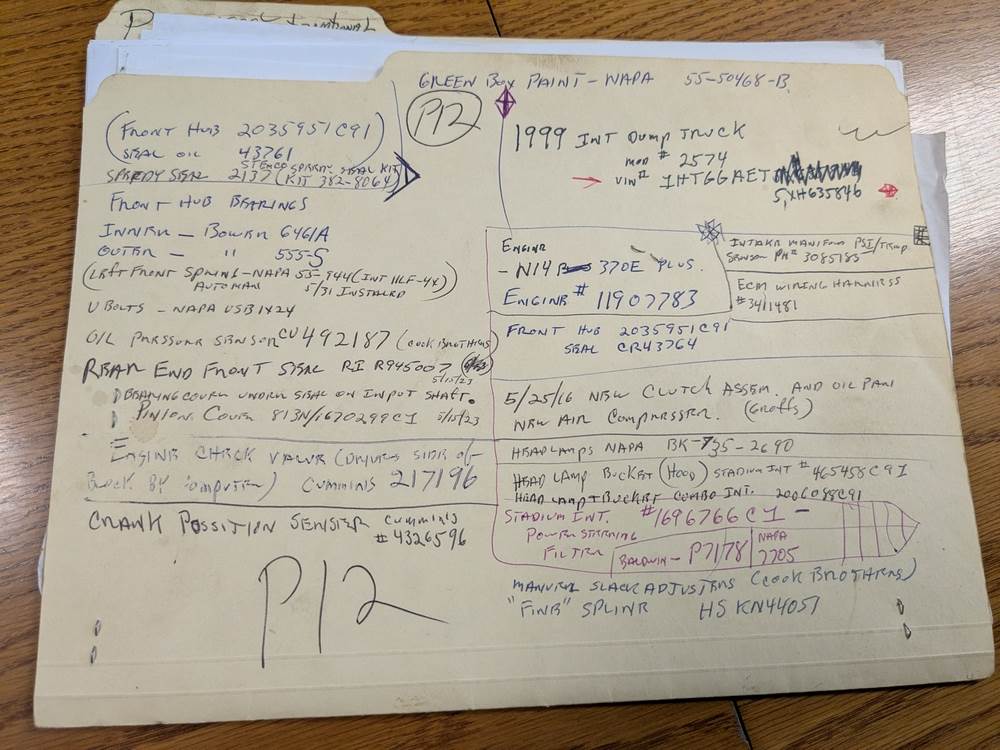 GREEN BOX PAINT - NAPA 55-50468-B
P12
1999 INT DUMP TRUCK
MOD # 2574
VIN # 1HTGGAET
5XH635846
(FRONT HUB 2035951C91
SEAL OIL 43761
STEMCO SPEEDY SEAL KIT
SPEEDY SEAL 2137 (KIT 382-8064)
FRONT HUB BEARINGS
INNER - BOWER 6461A
OUTER - " 555-S
(LEFT FRONT SPRING - NAPA 55-944 (INT HLF-44)
AUTOMAN 5/31 INSTALLED
U BOLTS - NAPA USB1424
OIL PRESSURE SENSOR CU 492187 (COOK BROTHERS)
REAR END FRONT SEAL RI R945007
5/15/23
BEARING COVER UNDER SEAL ON INPUT SHAFT.
PINION COVER 813N/1670299C1 5/15/23
ENGINE CHECK VALVE (DRIVERS SIDE OF
BLOCK BY COMPUTER) CUMMINS 217196
CRANK POSSITION SENSER CUMMINS
# 4326596
P12
ENGINE
- N14 370E PLUS.
ENGINE # 11907783
INTAKE MANIFOLD PSI/TEMP
SENSOR PN# 3085185
ECM WIRING HARNESS
# 3411481
FRONT HUB 2035951C91
SEAL CR43764
5/25/16 NEW CLUTCH ASSEM. AND OIL PAN
NEW AIR COMPRESSER. (Groffs)
HEADLAMPS NAPA BK-735-2690
HEAD LAMP BUCKET (HOOD) STADIUM INT # 465458C91
HEAD LAMP + BUCKET COMBO INT. 2006088C91
STADIUM INT. #1696766C1 -
POWER STEERING
FILTER BALDWIN - P7178 NAPA 7705
MANUEL SLACK ADJUSTERS (COOK BROTHERS)
"FINE" SPLINE HS KN44051